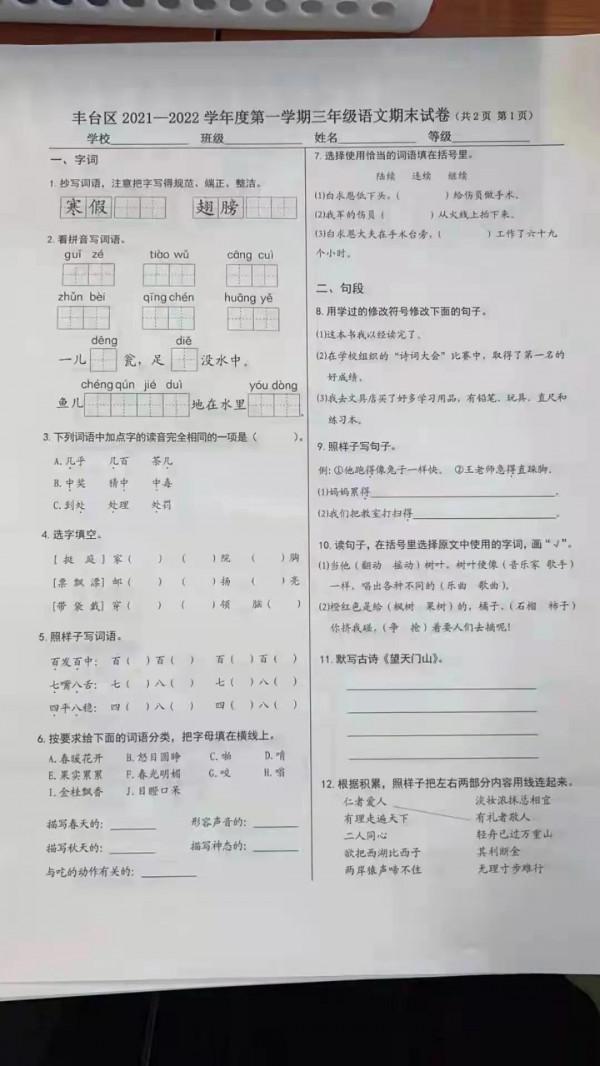 丰台区 2021—2022 学年度第一学期三年级语文期末试卷（共 2 页 第 1 页）
学校 班级 姓名 等级
一、字词
1. 抄写词语，注意把字写得规范、端正、整洁。
寒假 翅膀
2. 看拼音写词语。
guī zé tiào wǔ cāng cuì
zhǔn bèi qīng chén huāng yě
děng diē
一儿 瓮，足 没水中。
chéng qún jié duì yóu dòng
鱼儿 地在水里 。
3. 下列词语中加点字的读音完全相同的一项是（ ）。
A. 几乎 几百 茶几
B. 中奖 猜中 中毒
C. 到处 处理 处罚
4. 选字填空。
[ 挺 庭 ] 家（ ） （ ）院 （ ）胸
[票 飘 漂] 邮（ ） （ ）扬 （ ）亮
[带 袋 戴] 穿（ ） （ ）领 脑（ ）
5. 照样子写词语。
百发百中： 百（ ）百（ ） 百（ ）百（ ）
七嘴八舌： 七（ ）八（ ） 七（ ）八（ ）
四平八稳： 四（ ）八（ ） 四（ ）八（ ）
6. 按要求给下面的词语分类，把字母填在横线上。
A. 春暖花开 B. 怒目圆睁 C. 啪 D. 啃
E. 果实累累 F. 春光明媚 G. 咬 H. 嗡
I. 金桂飘香 J. 目瞪口呆
描写春天的： 形容声音的：
描写秋天的： 描写神态的：
与吃的动作有关的：
7. 选择使用恰当的词语填在括号里。
陆续 连续 继续
(1)白求恩低下头，（ ）给伤员做手术。
(2)我军的伤员（ ）从火线上抬下来。
(3)白求恩大夫在手术台旁，（ ）工作了六十九
个小时。
二、句段
8. 用学过的修改符号修改下面的句子。
(1)这本书我以经读完了。
(2)在学校组织的“诗词大会”比赛中，取得了第一名的
好成绩。
(3)我去文具店买了好多学习用品，有铅笔、玩具、直尺和
练习本。
9. 照样子写句子。
例: ①他跑得像兔子一样快。 ②王老师急得直跺脚。
(1)妈妈累得
(2)我们把教室打扫得
10. 读句子，在括号里选择原文中使用的字词，画“√”。
(1)当他（翻动 摇动）树叶，树叶便像（音乐家 歌手）
一样，唱出各种不同的（乐曲 歌曲）。
(2)橙红色是给（枫树 果树）的，橘子、（石榴 柿子）
你挤我碰，（争 抢）着要人们去摘呢！
11. 默写古诗《望天门山》。
12. 根据积累，照样子把左右两部分内容用线连起来。
仁者爱人 淡妆浓抹总相宜
有理走遍天下 有礼者敬人
二人同心 轻舟已过万重山
欲把西湖比西子 其利断金
两岸猿声啼不住 无理寸步难行